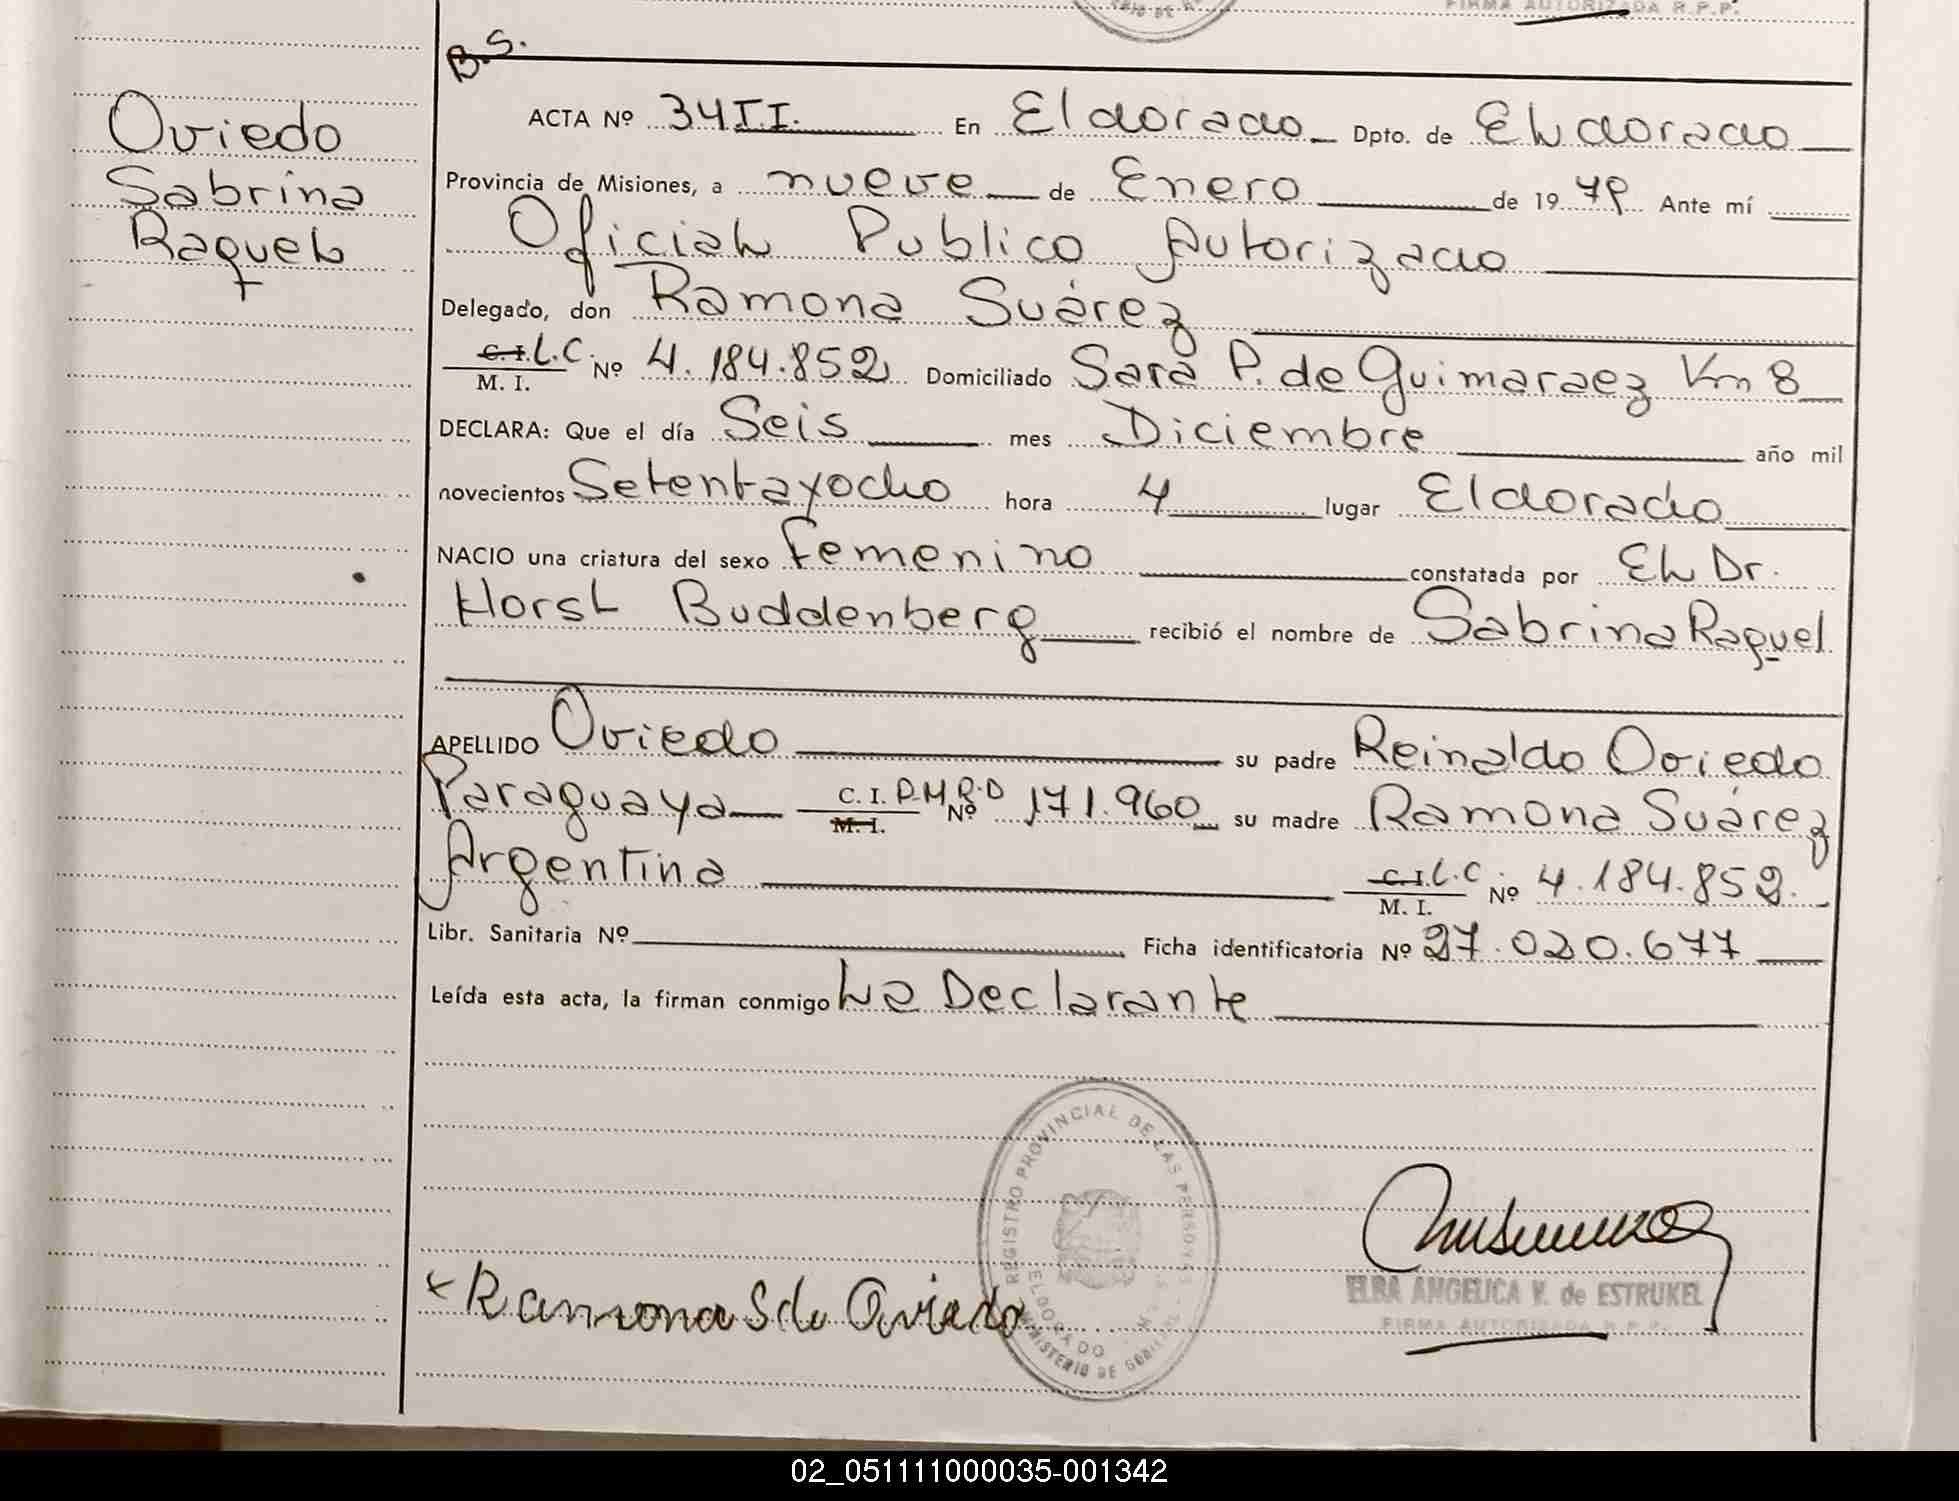 FIRMA AUTORIZADA R.P.P.
B.S.
Oviedo
Sabrina
Raquel
ACTA Nº 34 T.I. En Eldorado Dpto. de Eldorado
Provincia de Misiones, a nueve de Enero de 1979 Ante mí
Oficial Publico Autorizado
Delegado, don Ramona Suárez
C.I. L.C. Nº 4.184.852 Domiciliado Sara P. de Guimaraez Km 8
M. I.
DECLARA: Que el día Seis mes Diciembre año mil
novecientos Setentayocho hora 4 lugar Eldorado
NACIO una criatura del sexo Femenino constatada por El Dr.
Horst Buddenberg recibió el nombre de Sabrina Raquel
APELLIDO Oviedo su padre Reinaldo Oviedo
Paraguaya C. I. Nº 171.960 su madre Ramona Suárez
M. I.
Argentina C.I. L.C Nº 4.184.852.
M. I.
Libr. Sanitaria Nº Ficha identificatoria Nº 27.020.677
Leída esta acta, la firman conmigo La Declarante
REGISTRO PROVINCIAL DE LAS PERSONAS
ELDORADO
MINISTERIO DE GOBIERNO
Ramona S de Oviedo
ELBA ANGELICA V. de ESTRUKEL
FIRMA AUTORIZADA R.P.P.
02_051111000035-001342